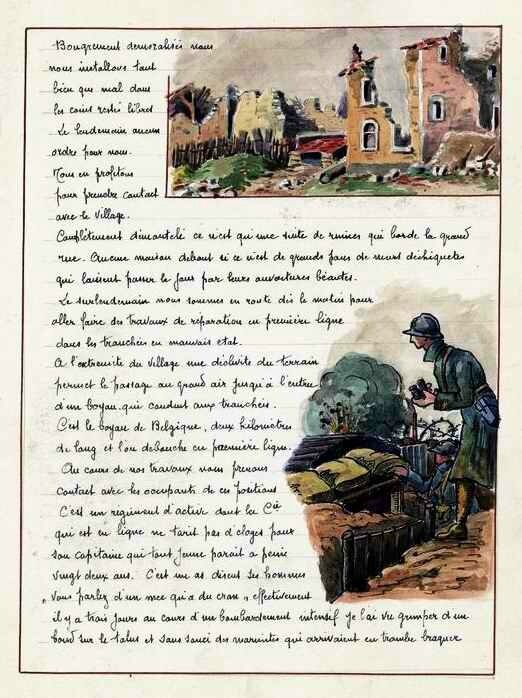 Bougrement demoralisés nous
nous installons tant
bien que mal dans
les coins restés libres
Le lendemain aucun
ordre pour nous.
Nous en profitons
pour prendre contact
avec le village.
Complètement dimantelé ce n'est qu'une suite de ruines qui borde la grand
rue. Aucune maison debout si ce n'est de grands pans de murs déchiquetés
qui laissent passer le jour par leurs ouvertures béantes.
Le surlendemain nous sommes en route dès le matin pour
aller faire des travaux de réparation en première ligne
dans les tranchées en mauvais etat.
A l'extremité du village une déclivité du terrain
permet le passage au grand air jusqu'à l'entrée
d'un boyau qui conduit aux tranchées.
C'est le boyau de Belgique, deux kilomètres
de long et l'on debouche en première ligne.
Au cours de nos travaux nous prenons
contact avec les occupants de ces positions
C'est un regiment d'active dont la Cie
qui est en ligne ne tarit pas d'eloges pour
son capitaine qui tout jeune parait a peine
vingt deux ans. C'est un as disent ses hommes
"vous parlez d'un mec qui a du cran" effectivement
il y a trois jours au cours d'un bombardement intensif je l'ai vu grimper d'un
bond sur le talus et sans souci des marmites qui arrivaient en trombe braquer